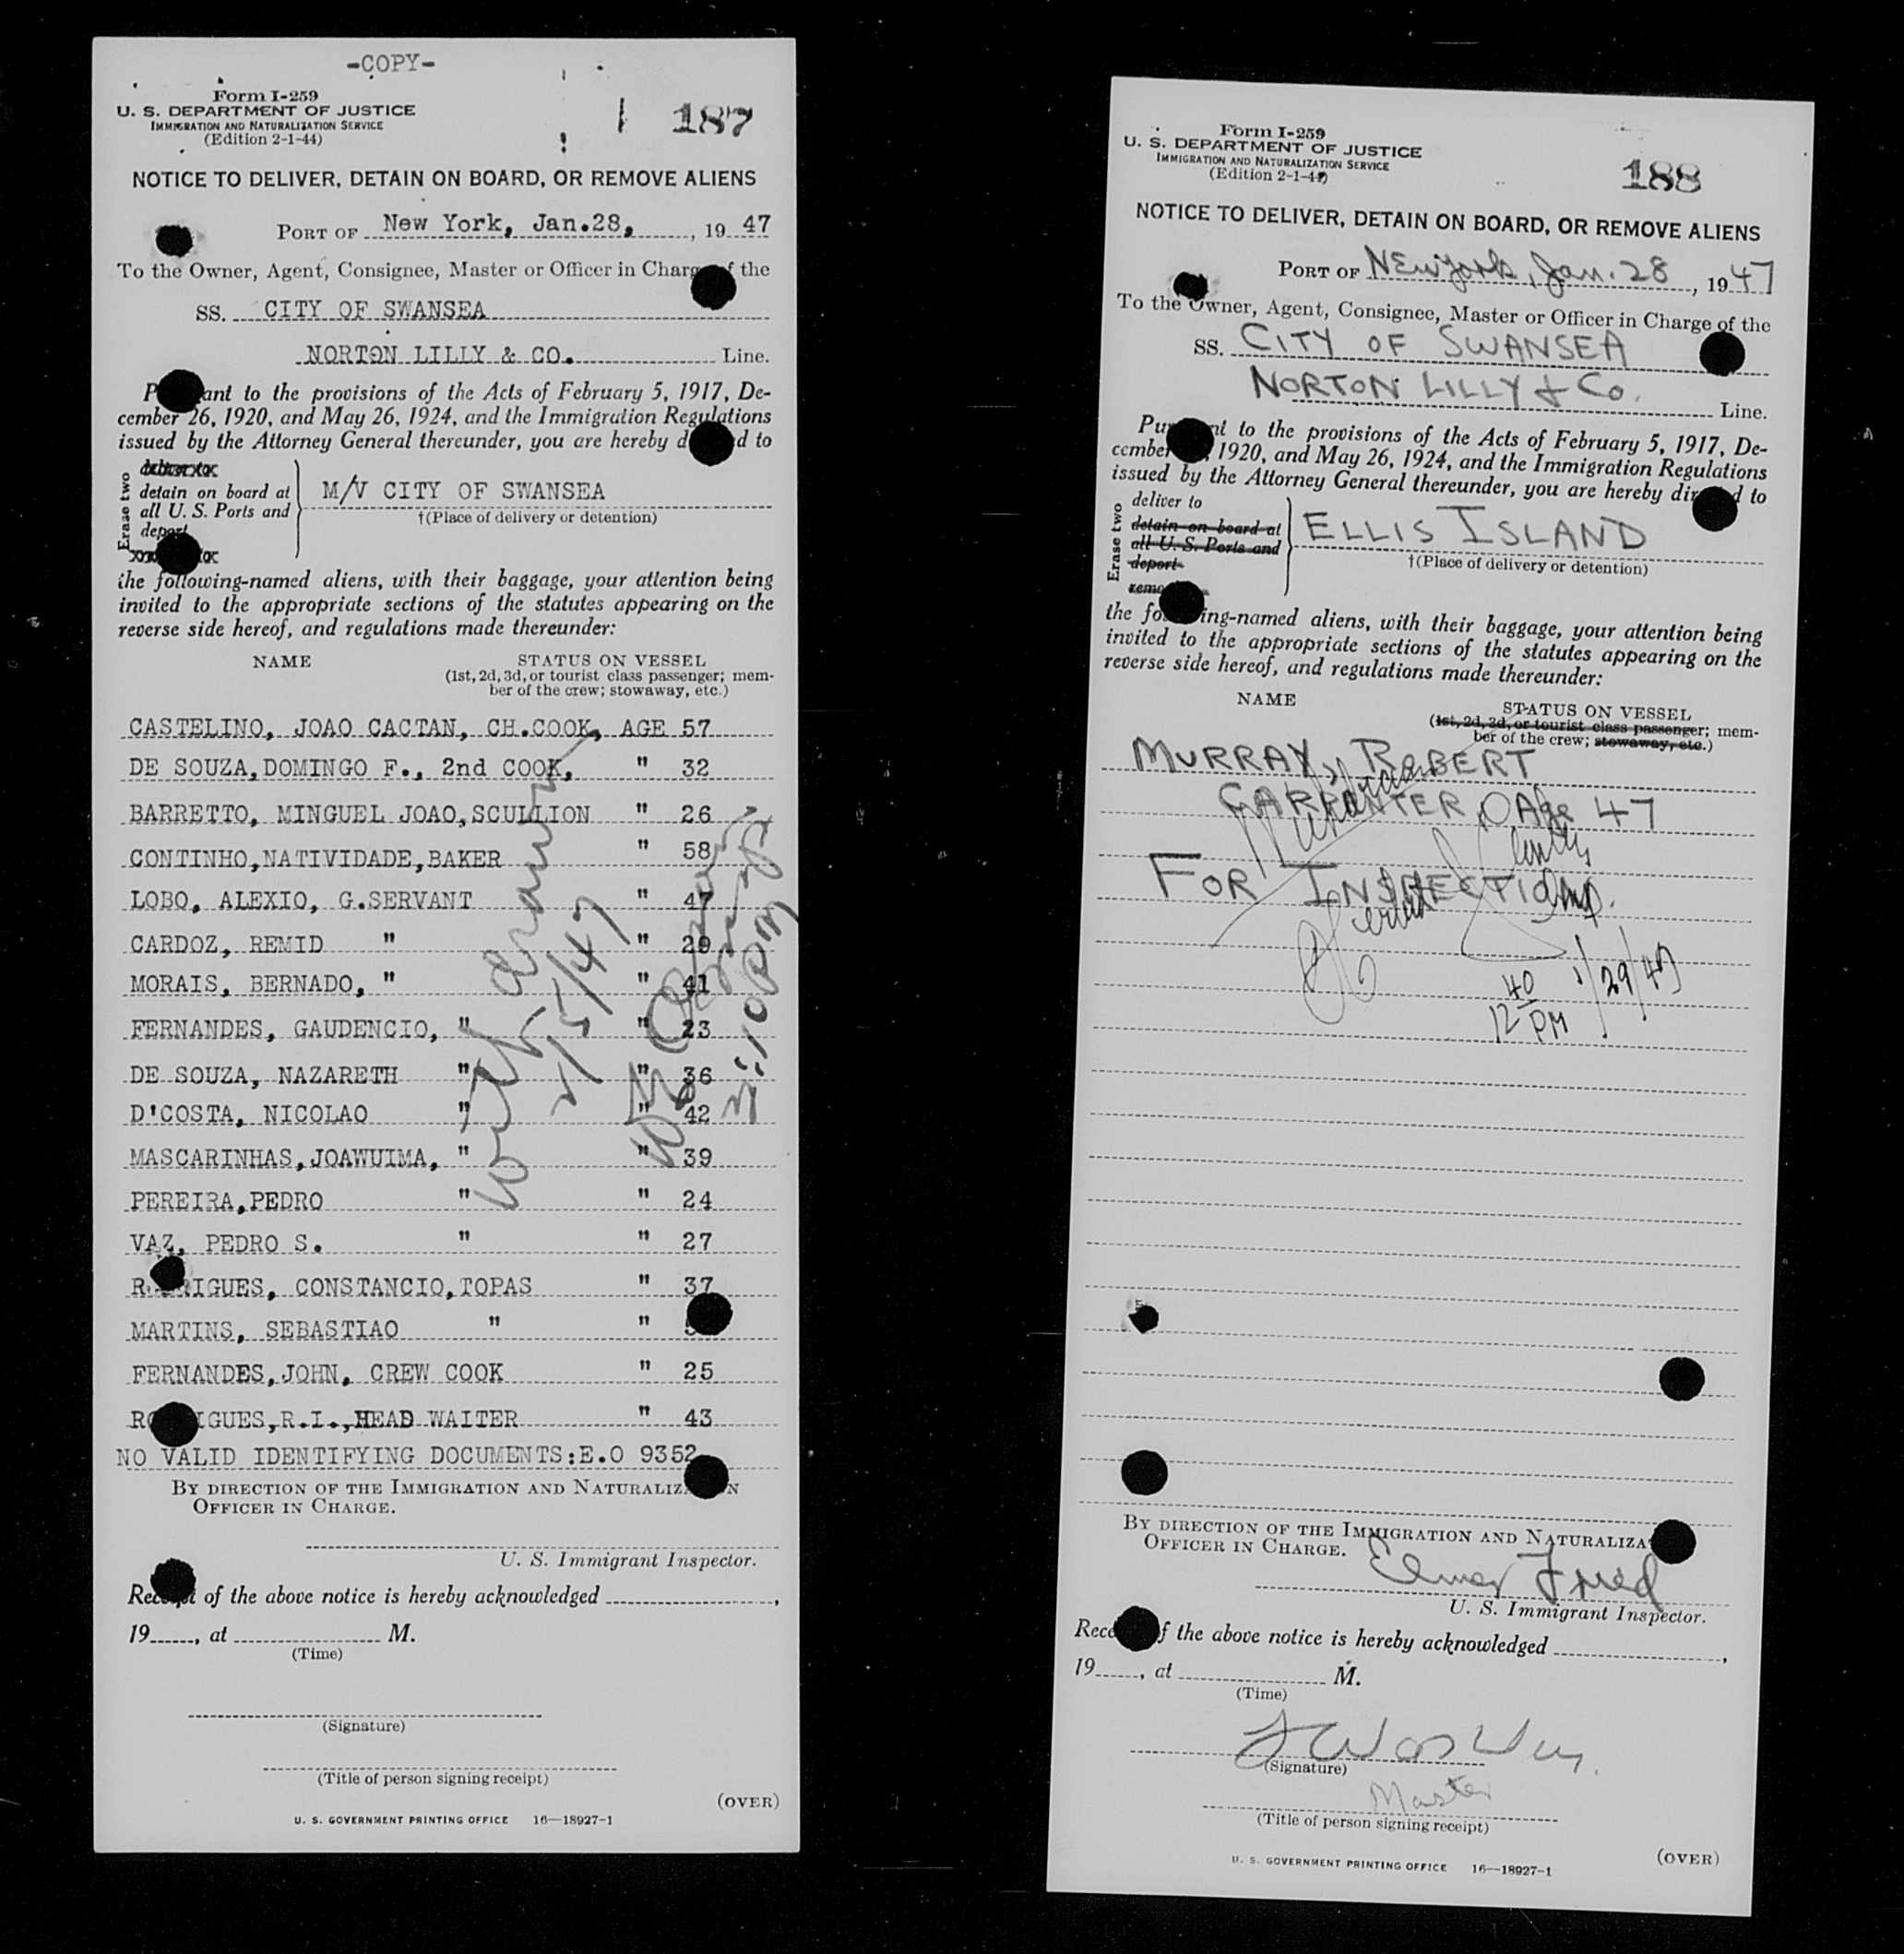 -COPY-
Form I-259
U. S. DEPARTMENT OF JUSTICE
IMMIGRATION AND NATURALIZATION SERVICE
(Edition 2-1-44)
187
NOTICE TO DELIVER, DETAIN ON BOARD, OR REMOVE ALIENS
PORT OF New York, Jan.28, , 19 47
To the Owner, Agent, Consignee, Master or Officer in Charge of the
SS. CITY OF SWANSEA
NORTON LILLY & CO. Line.
to the provisions of the Acts of February 5, 1917, De-
cember 26, 1920, and May 26, 1924, and the Immigration Regulations
issued by the Attorney General thereunder, you are hereby to
Erase two
detain on board at
all U. S. Ports and
deport
M/V CITY OF SWANSEA
†(Place of delivery or detention)
the following-named aliens, with their baggage, your attention being
invited to the appropriate sections of the statutes appearing on the
reverse side hereof, and regulations made thereunder:
NAME STATUS ON VESSEL
(1st, 2d, 3d, or tourist class passenger; mem-
ber of the crew; stowaway, etc.)
CASTELINO, JOAO CACTAN, CH.COOK, AGE 57
DE SOUZA,DOMINGO F., 2nd COOK, " 32
BARRETTO, MINGUEL JOAO,SCULLION " 26
CONTINHO,NATIVIDADE,BAKER " 58
LOBO, ALEXIO, G.SERVANT " 47
CARDOZ, REMID " " 29
MORAIS, BERNADO, " " 41
FERNANDES, GAUDENCIO, " " 23
DE SOUZA, NAZARETH " " 36
D'COSTA, NICOLAO " " 42
MASCARINHAS,JOAWUIMA, " " 39
PEREIRA,PEDRO " " 24
VAZ, PEDRO S. " " 27
RODRIGUES, CONSTANCIO,TOPAS " 37
MARTINS, SEBASTIAO " "
FERNANDES,JOHN, CREW COOK " 25
RODRIGUES,R.I.,HEAD WAITER " 43
NO VALID IDENTIFYING DOCUMENTS:E.O 9352
2/5/47
BY DIRECTION OF THE IMMIGRATION AND NATURALIZATION
OFFICER IN CHARGE.
U. S. Immigrant Inspector.
Receipt of the above notice is hereby acknowledged ,
19 , at M.
(Time)
(Signature)
(Title of person signing receipt)
(OVER)
U. S. GOVERNMENT PRINTING OFFICE 16—18927-1
Form I-259
U. S. DEPARTMENT OF JUSTICE
IMMIGRATION AND NATURALIZATION SERVICE
(Edition 2-1-44)
188
NOTICE TO DELIVER, DETAIN ON BOARD, OR REMOVE ALIENS
PORT OF New York, Jan. 28 , 19 47
To the Owner, Agent, Consignee, Master or Officer in Charge of the
SS. CITY OF SWANSEA
NORTON LILLY & Co. Line.
to the provisions of the Acts of February 5, 1917, De-
cember 1920, and May 26, 1924, and the Immigration Regulations
issued by the Attorney General thereunder, you are hereby directed to
Erase two
deliver to
detain on board at
all U. S. Ports and
deport
ELLIS ISLAND
†(Place of delivery or detention)
the following-named aliens, with their baggage, your attention being
invited to the appropriate sections of the statutes appearing on the
reverse side hereof, and regulations made thereunder:
NAME STATUS ON VESSEL
(1st, 2d, 3d, or tourist class passenger; mem-
ber of the crew; stowaway, etc.)
MURRAY, ROBERT
CARPENTER, Age 47
FOR INSPECTION.
12 40 PM 1/29/47
BY DIRECTION OF THE IMMIGRATION AND NATURALIZA
OFFICER IN CHARGE.
Elmer Fried
U. S. Immigrant Inspector.
Receipt of the above notice is hereby acknowledged ,
19 , at M.
(Time)
(Signature)
Master
(Title of person signing receipt)
(OVER)
U. S. GOVERNMENT PRINTING OFFICE 16—18927-1